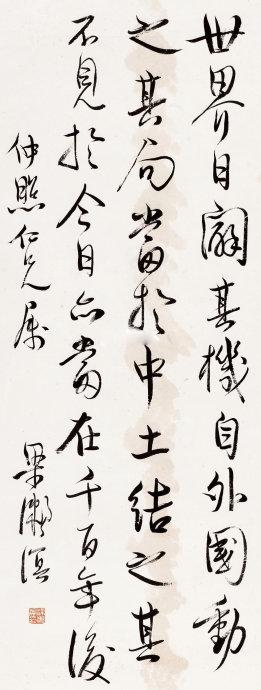 世界日闢其機自外國動
之其局當於中土結之其
不見於今日亦當在千百年後
仲照仁兄属
梁漱溟